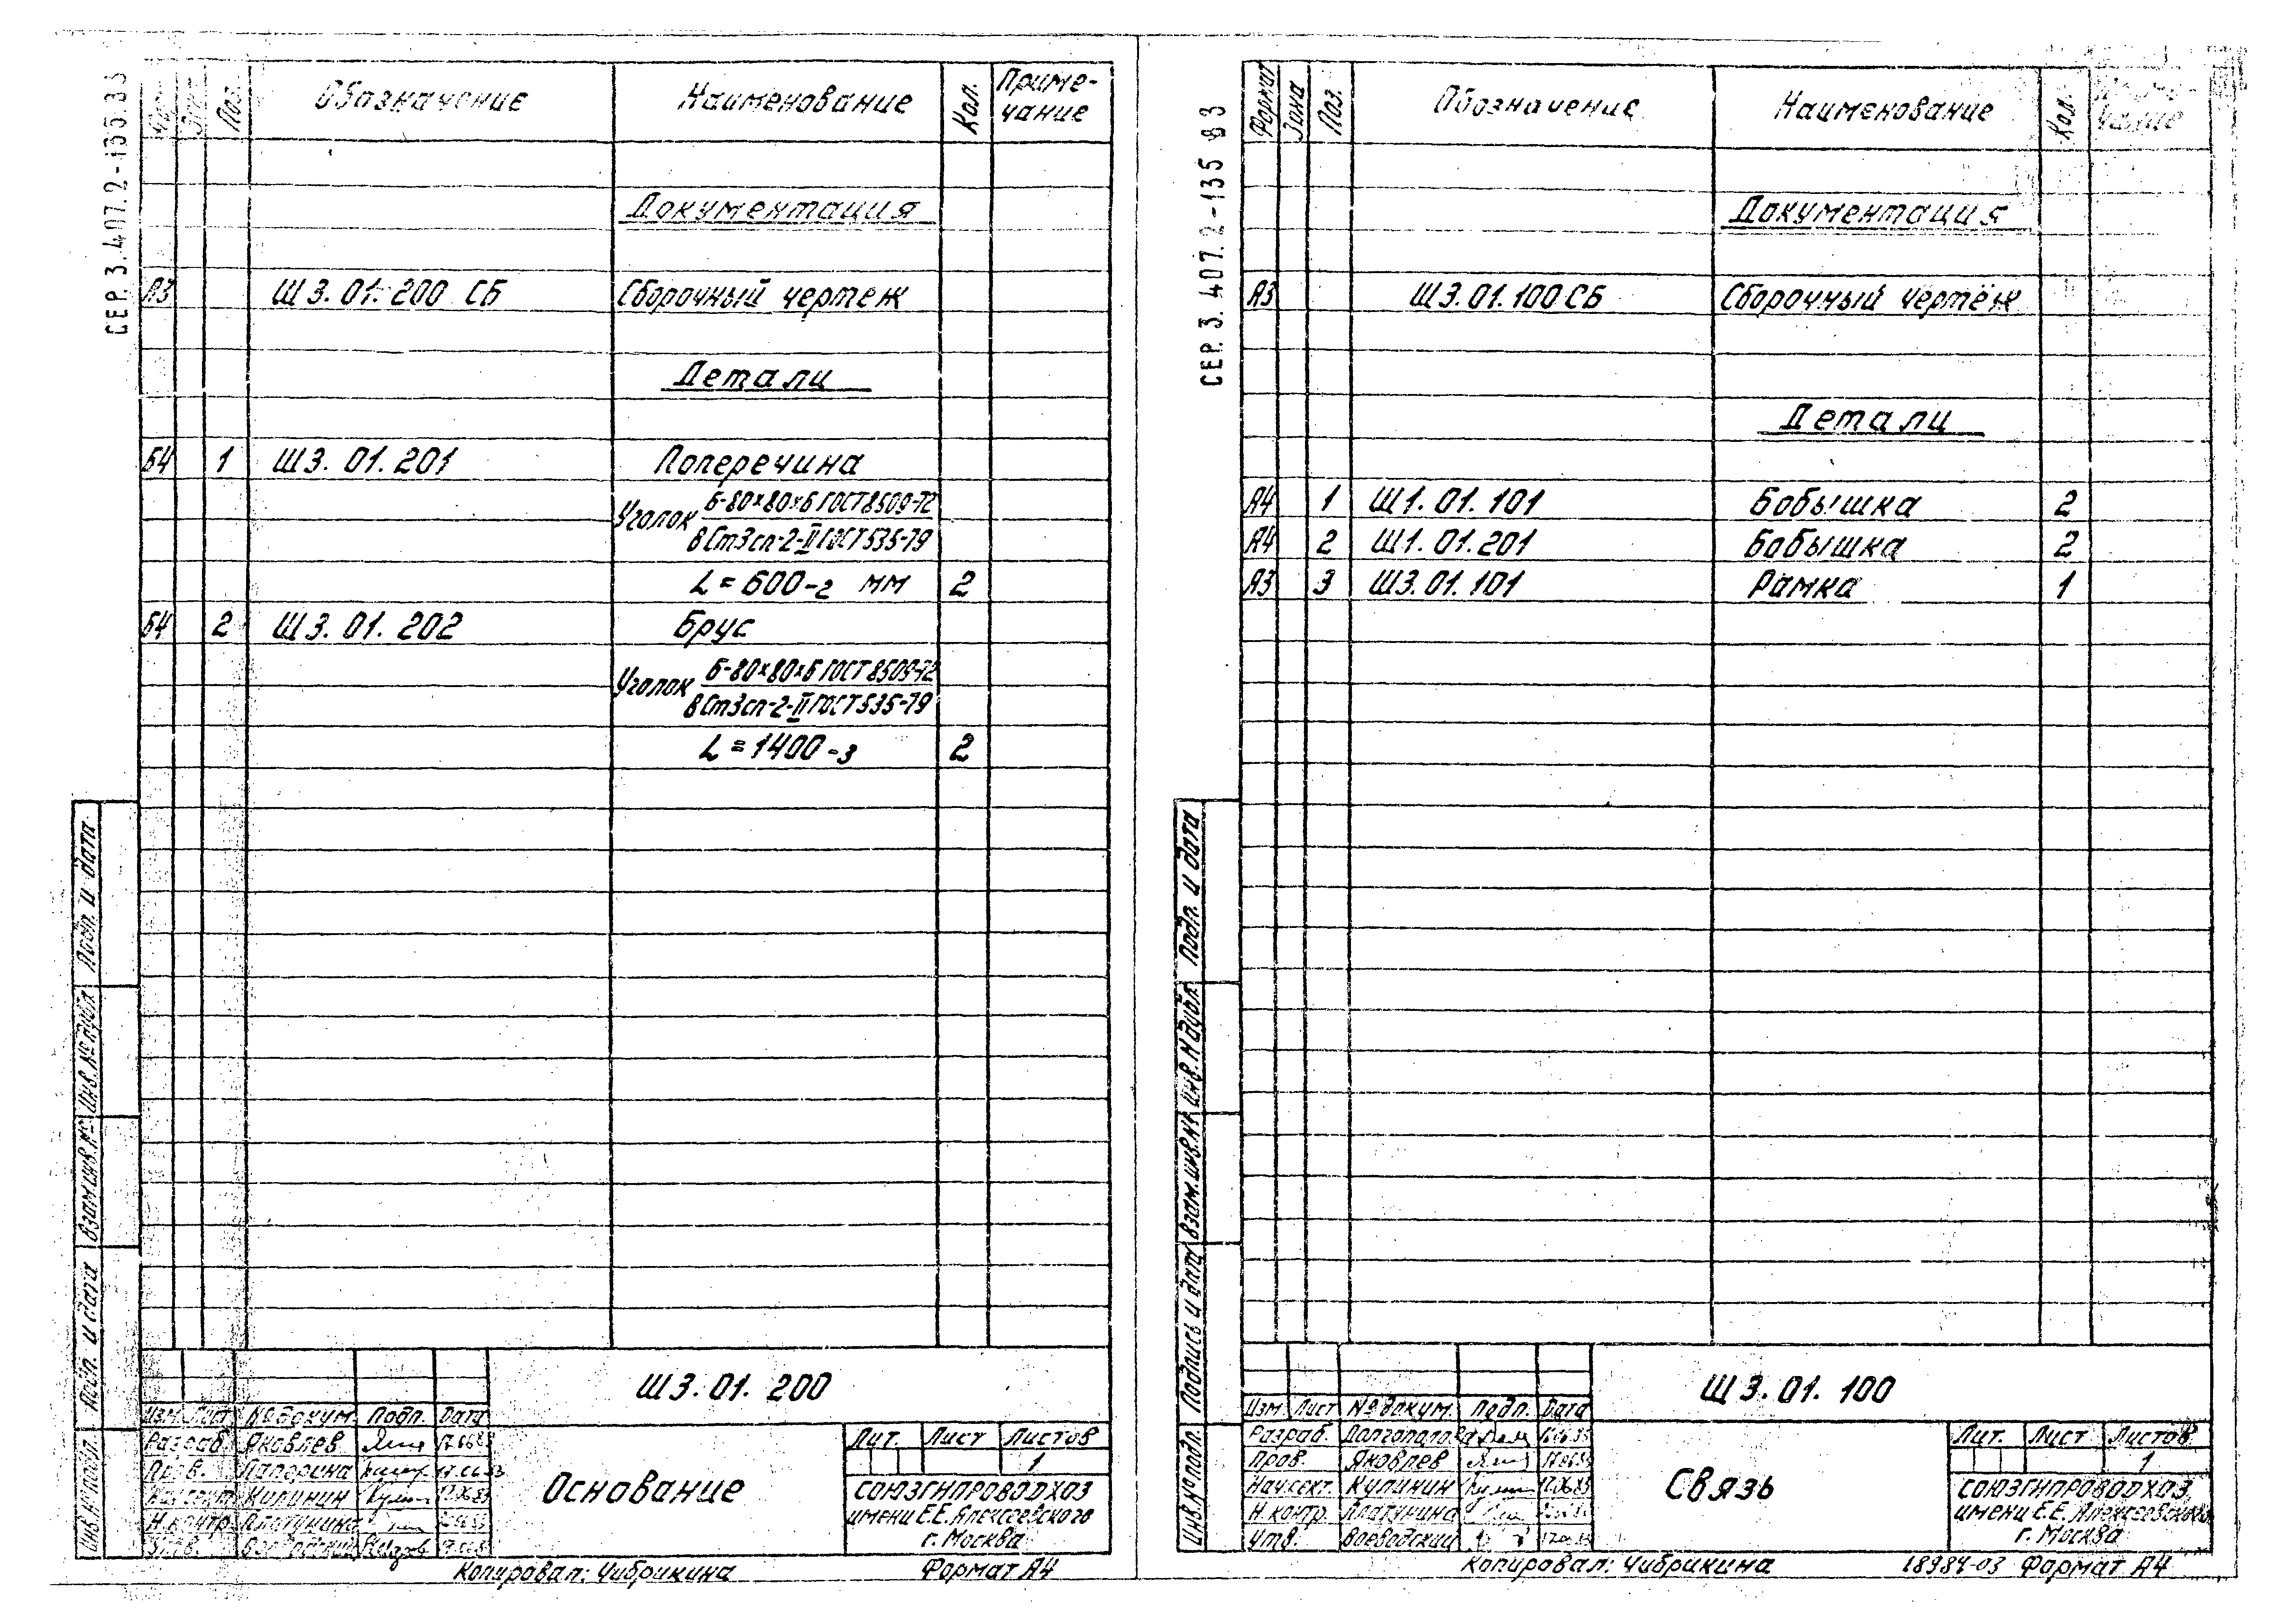 СЕР. 3.407.2-135.83
Поз. Обозначение Наименование Кол. Приме-
чание
Документация
А3 ШЗ.01.200 СБ Сборочный чертеж
Детали
Б4 1 ШЗ.01.201 Поперечина
Уголок Б-80×80×6 ГОСТ 8509-72
ВСт3сп-2-II ГОСТ 535-79
L=600-2 мм 2
Б4 2 ШЗ.01.202 Брус
Уголок Б-80×80×6 ГОСТ 8509-72
ВСт3сп-2-II ГОСТ 535-79
L=1400-3 2
Подп. и дата
Инв.№ дубл
Взам.инв.№
Подп. и дата
Инв.№ подл.
ШЗ.01.200
Изм. Лист № докум. Подп. Дата
Разраб. Яковлев
Пров.
Кулинин
Н.контр. Платунина
Утв.
Основание
Лит. Лист Листов
1
СОЮЗГИПРОВОДХОЗ
имени Е.Е. Алексеевского
г. Москва
Копировал: Чибрикина Формат А4
СЕР. 3.407.2-135 83
Формат Зона Поз. Обозначение Наименование Кол. Приме-
чание
Документация
А3 ШЗ.01.100 СБ Сборочный чертёж
Детали
А4 1 Ш1.01.101 Бобышка 2
А4 2 Ш1.01.201 Бобышка 2
А3 3 ШЗ.01.101 Рамка 1
Подп. и дата
Инв.№ дубл
Взам.инв.№
Подпись и дата
Инв.№ подл.
ШЗ.01.100
Изм Лист № докум. Подп. Дата
Разраб.
Пров. Яковлев
Нач.сект. Кулинин
Н.контр. Платунина
Утв. Воеводский
Связь
Лит. Лист Листов
1
СОЮЗГИПРОВОДХОЗ
имени Е.Е. Алексеевского
г. Москва
Копировал: Чибрикина 18984-03 Формат А4